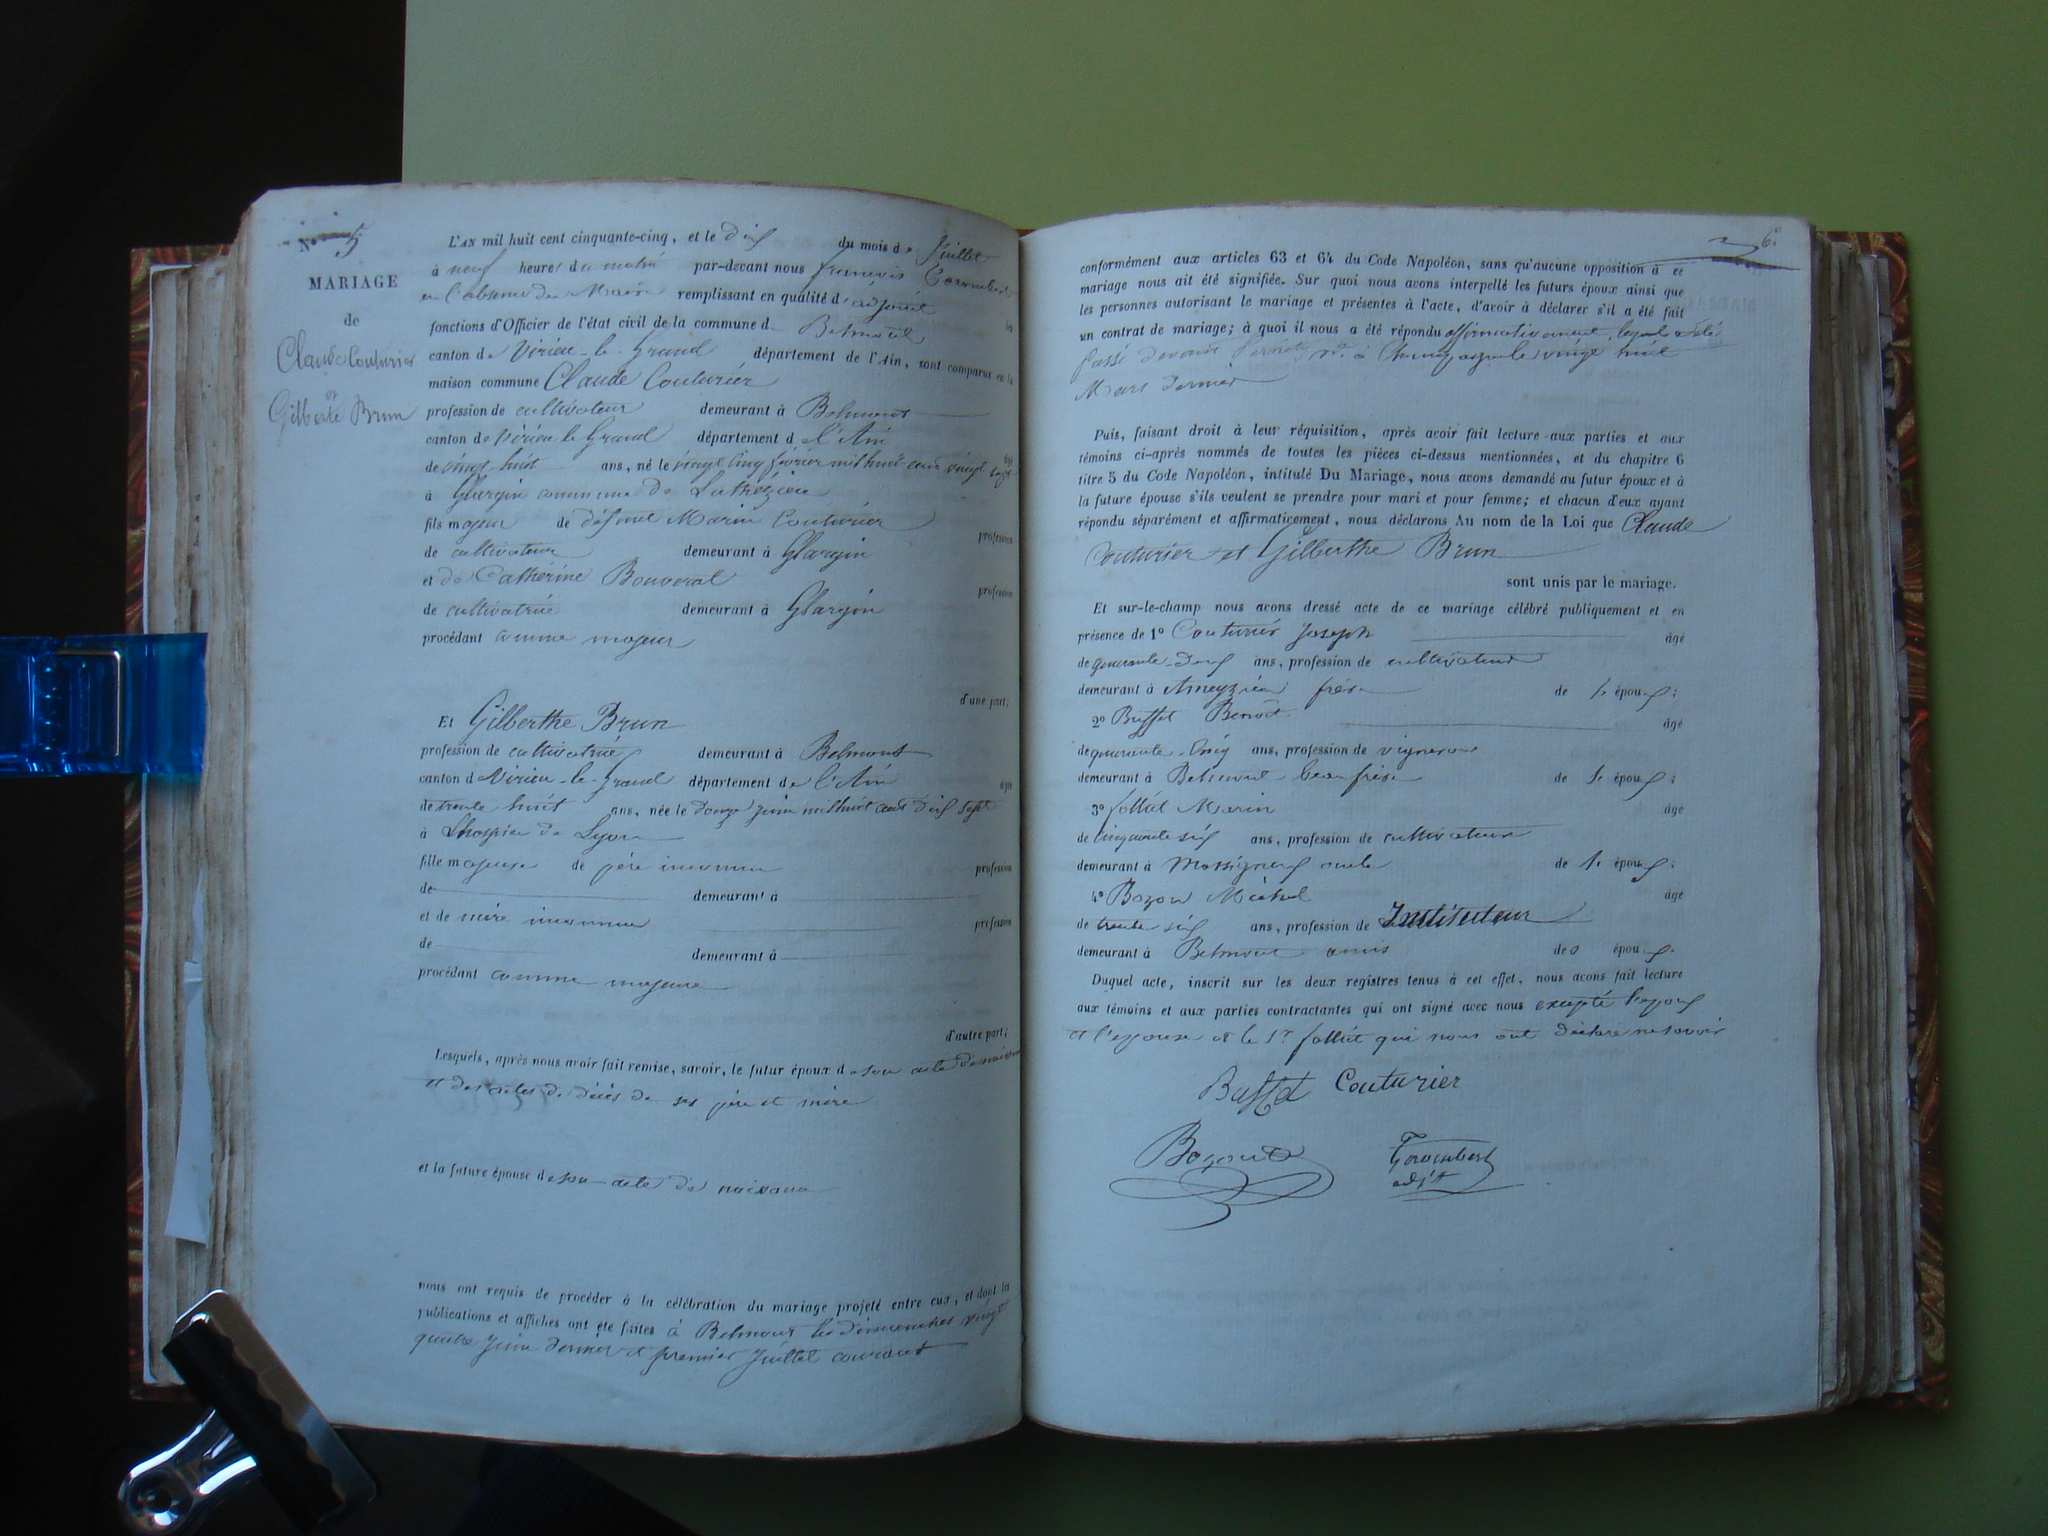 N° 5
MARIAGE
de
Claude Couturier
et
Gilberte Brun
L'AN mil huit cent cinquante-cinq, et le dix du mois de Juillet
à neuf heures du matin par-devant nous françois Toromber
en l'absence du Maire remplissant en qualité d'adjoint les
fonctions d'Officier de l'état civil de la commune d Belmont
canton de Virieu-le-Grand département de l'Ain, sont comparus en la
maison commune Claude Couturier
profession de cultivateur demeurant à Belmont
canton de Virieu le Grand département de l'Ain âgé
de vingt-huit ans, né le vingt cinq février mil huit cent vingt sept
à Glargin commune de Luthézieu
fils majeur de défunt Marin Couturier profession
de cultivateur demeurant à Glargin
et de Catherine Bouverat profession
de cultivatrice demeurant à Glargin
procédant comme majeur
d'une part;
Et Gilberthe Brun
profession de cultivatrice demeurant à Belmont
canton d Virieu-le-Grand département de l'Ain âgée
de trente huit ans, née le douze juin mil huit cent dix sept
à Lhospice de Lyon
fille majeure de père inconnu profession
de demeurant à
et de mère inconnue profession
de demeurant à
procédant comme majeure
d'autre part;
Lesquels, après nous avoir fait remise, savoir, le futur époux de son acte de naissance
et des actes de décès de ses père et mère
et la future épouse de son acte de naissance
nous ont requis de procéder à la célébration du mariage projeté entre eux, et dont les
publications et affiches ont été faites à Belmont les dimanches vingt
quatre juin dernier et premier Juillet courant
6
conformément aux articles 63 et 64 du Code Napoléon, sans qu'aucune opposition à ce
mariage nous ait été signifiée. Sur quoi nous avons interpellé les futurs époux ainsi que
les personnes autorisant le mariage et présentes à l'acte, d'avoir à déclarer s'il a été fait
un contrat de mariage; à quoi il nous a été répondu affirmativement, lequel a été
passé devant à Champagne le vingt huit
Mars dernier
Puis, faisant droit à leur réquisition, après avoir fait lecture aux parties et aux
témoins ci-après nommés de toutes les pièces ci-dessus mentionnées, et du chapitre 6
titre 5 du Code Napoléon, intitulé Du Mariage, nous avons demandé au futur époux et à
la future épouse s'ils veulent se prendre pour mari et pour femme; et chacun d'eux ayant
répondu séparément et affirmativement, nous déclarons Au nom de la Loi que Claude
Couturier et Gilberthe Brun
sont unis par le mariage.
Et sur-le-champ nous avons dressé acte de ce mariage célébré publiquement et en
présence de 1° Couturier Joseph âgé
de quarante-deux ans, profession de cultivateur
demeurant à Ameyzieu frère de l'époux;
2° Buffet Benoît âgé
de quarante-cinq ans, profession de vigneron
demeurant à Belmont beau frère de l'époux;
3° follièt Marin âgé
de cinquante six ans, profession de cultivateur
demeurant à Massignieu oncle de l'époux;
4° Bozon Michel âgé
de trente six ans, profession de Instituteur
demeurant à Belmont amis des époux.
Duquel acte, inscrit sur les deux registres tenus à cet effet, nous avons fait lecture
aux témoins et aux parties contractantes qui ont signé avec nous excepté l'époux
et l'épouse et le Sr follièt qui nous ont déclaré ne savoir
Buffet Couturier
Torombert
adjt